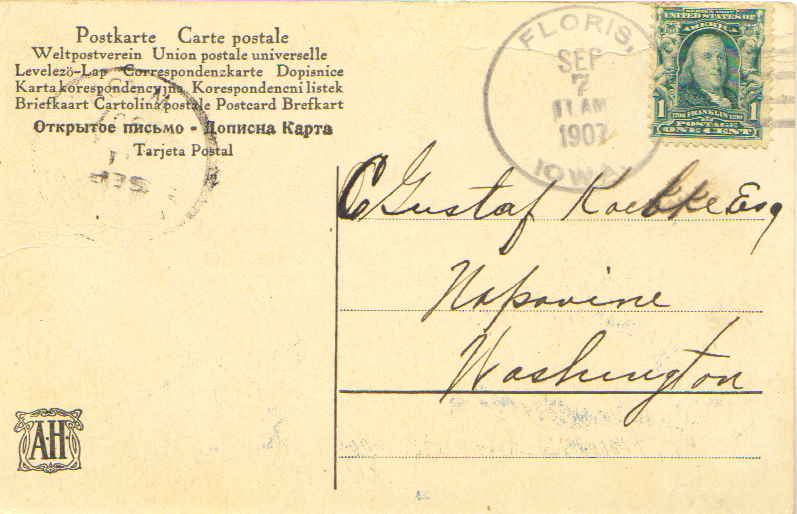 Postkarte Carte postale
Weltpostverein Union postale universelle
Levelezö-Lap Correspondenzkarte Dopisnice
Karta korespondencyjna Korespondencni listek
Briefkaart Cartolina postale Postcard Brefkort
Открытое письмо - Дописна Карта
Tarjeta Postal
SEP
FLORIS,
SEP
7
11 AM
1907
IOWA
UNITED STATES OF
AMERICA
1 1
1706 FRANKLIN 1790
POSTAGE
ONE CENT
Gustaf Koebke Esq
Napavine
Washington
A.H.